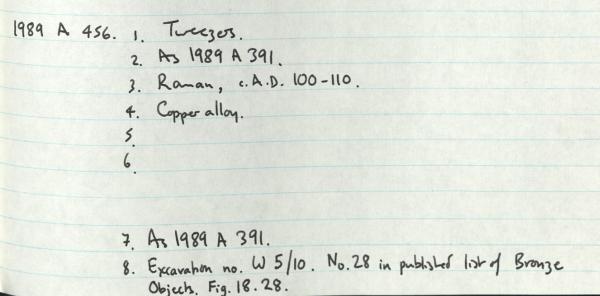 1989 A 456. 1. Tweezers.
2. As 1989 A 391.
3. Roman, c. A.D. 100-110.
4. Copper alloy.
5.
6.
7. As 1989 A 391.
8. Excavation no. W 5/10. No. 28 in published list of Bronze
Objects. Fig. 18. 28.